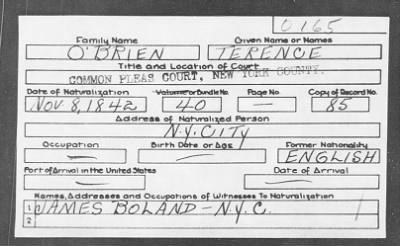 O 165
Family Name Given Name or Names
O'BRIEN TERENCE
Title and Location of Court
COMMON PLEAS COURT, NEW YORK COUNTY.
Date of Naturalization Volume or Bundle No. Page No. Copy of Record No.
NOV 8, 1842 40 — 85
Address of Naturalized Person
N.Y. CITY
Occupation Birth Date or Age Former Nationality
— — ENGLISH
Port of Arrival in the United States Date of Arrival
— —
Names, Addresses and Occupations of Witnesses To Naturalization
1 JAMES BOLAND - N.Y.C.
2